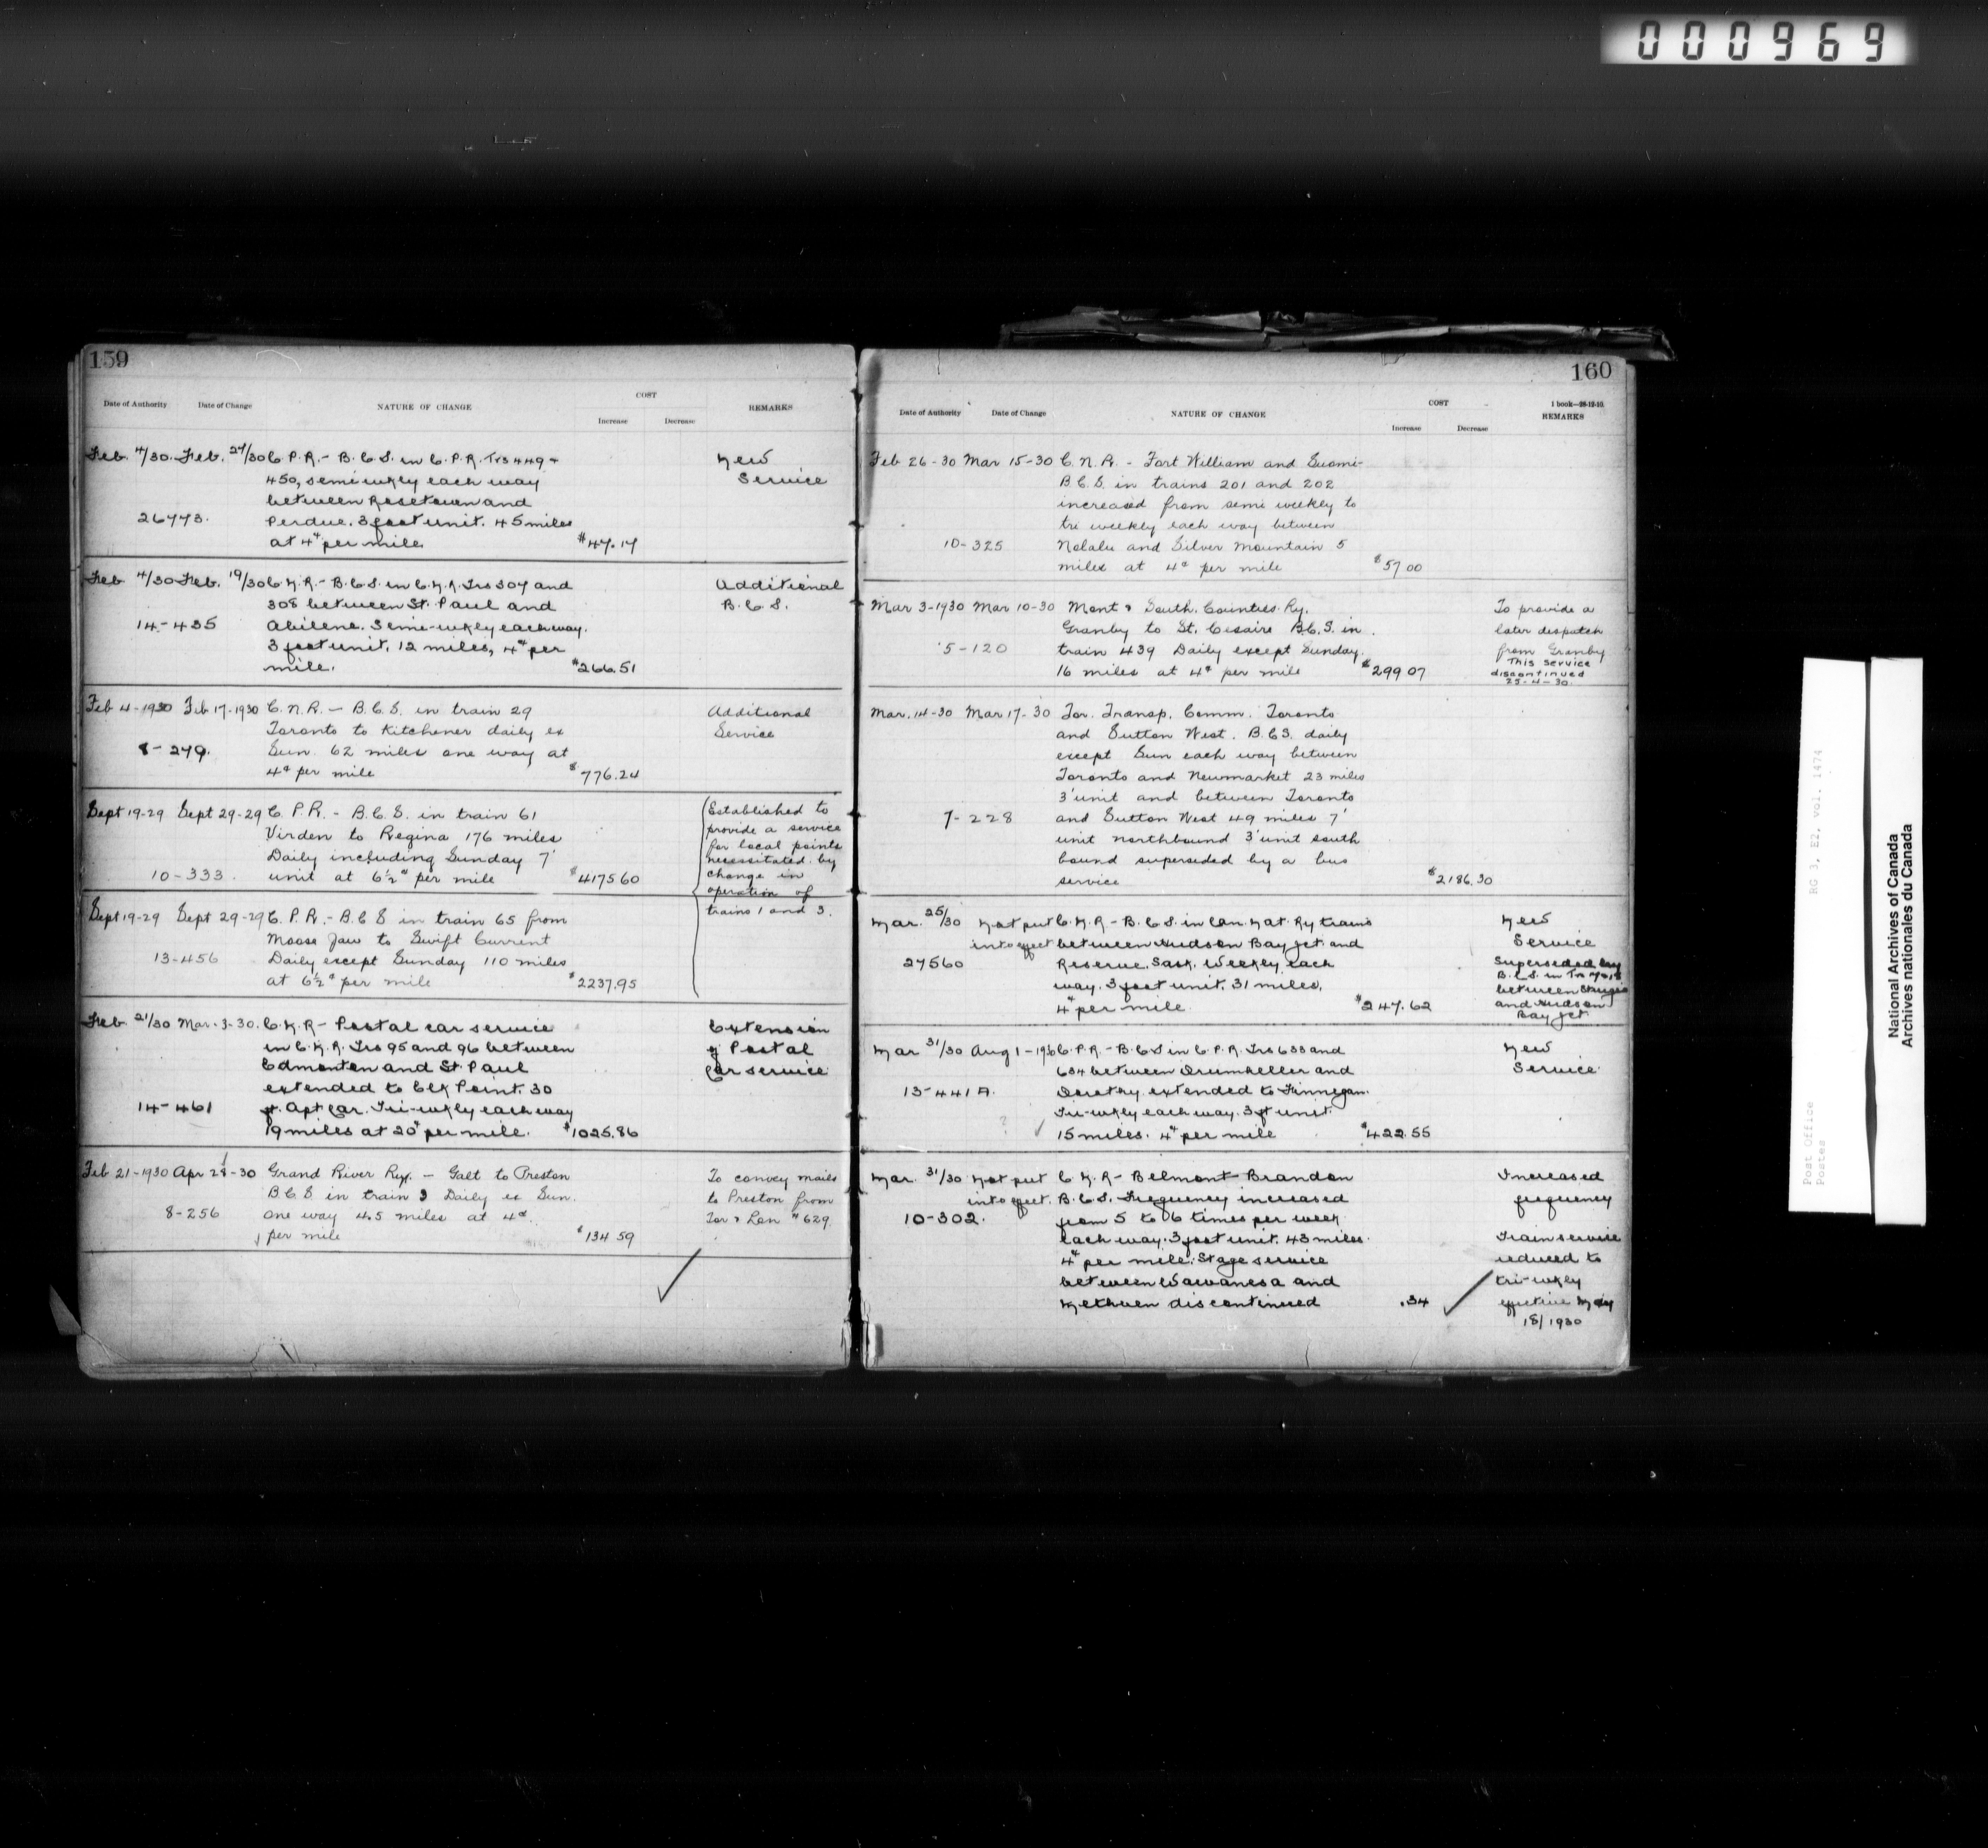 000969
159
Date of Authority Date of Change NATURE OF CHANGE COST REMARKS
Increase Decrease
Feb. 4/30 Feb. 27/30 C.P.R. - B.C.S. in C.P.R. Trs 449 &
450, semi wkly each way
between Rosetown and
26773. Perdue. 3 foot unit. 45 miles
at 4¢ per mile $47.17
New
Service
Feb 4/30 Feb. 19/30 C.N.R. - B.C.S. in C.N.R. Trs 307 and
308 between St. Paul and
14-435 Abilene. Semi-wkly each way.
3 foot unit. 12 miles, 4¢ per
mile. $266.51
Additional
B.C.S.
Feb 4-1930 Feb 17-1930 C.N.R. - B.C.S. in train 29
Toronto to Kitchener daily ex
8-279. Sun. 62 miles one way at
4¢ per mile $776.24
Additional
Service
Sept 19-29 Sept 29-29 C.P.R. - B.C.S. in train 61
Virden to Regina 176 miles
Daily including Sunday 7'
10-333. unit at 6½¢ per mile $4175.60
Established to
provide a service
for local points
necessitated by
change in
operation of
trains 1 and 3.
Sept 19-29 Sept 29-29 C.P.R. - B.C.S in train 65 from
Moose Jaw to Swift Current
13-456 Daily except Sunday 110 miles
at 6½¢ per mile $2237.95
Feb 21/30 Mar. 3-30. C.N.R - Postal car service
in C.N.R. Trs 95 and 96 between
Edmonton and St Paul
extended to Elk Point. 30
14-461 ft. Apt Car. Tri-wkly each way
19 miles at 20¢ per mile. $1025.86
Extension
of Postal
Car service
Feb 21-1930 Apr 28-30 Grand River Ry. - Galt to Preston
B.C.S in train 3 Daily ex Sun.
8-256 one way 4.5 miles at 4¢
per mile $134 59
To convey mails
to Preston from
Tor & Lon #629
160
1 book-28-12-10.
Date of Authority Date of Change NATURE OF CHANGE COST REMARKS
Increase Decrease
Feb 26-30 Mar 15-30 C.N.R. - Fort William and Suomi-
B.C.S. in trains 201 and 202
increased from semi weekly to
tri weekly each way between
10-325 Nolalu and Silver Mountain 5
miles at 4¢ per mile $57 00
Mar 3-1930 Mar 10-30 Mont & South. Counties. Ry.
Granby to St. Cesaire B.C.S. in
5-120 train 439 Daily except Sunday.
16 miles at 4¢ per mile $299 07
To provide a
later dispatch
from Granby
This service
discontinued
25-4-30.
Mar. 14-30 Mar 17-30 Tor. Transp. Comm. Toronto
and Sutton West. B.C.S. daily
except Sun each way between
Toronto and Newmarket 23 miles
3' unit and between Toronto
7-228 and Sutton West 49 miles 7'
unit northbound 3' unit south
bound superseded by a bus
service $2186.30
Mar. 25/30 Not put C.N.R - B.C.S. in Can. Nat. Ry trains
into effect between Hudson Bay Jct. and
27560 Reserve, Sask. Weekly each
way. 3 foot unit. 31 miles,
4¢ per mile $247.62
New
Service
Superseded by
B.C.S. in Trs
between Sturgis
and Hudson
Bay Jct
Mar 31/30 Aug 1-1930 C.P.R. - B.C.S in C.P.R. Trs 633 and
634 between Drumheller and
13-441 A. Dorothy extended to Finnegan.
Tri-wkly each way. 3 ft unit.
15 miles. 4¢ per mile $422.55
New
Service
Mar. 31/30 Not put C.N.R - Belmont-Brandon
into effect. B.C.S. Frequency increased
10-302. from 5 to 6 times per week
each way. 3 foot unit. 43 miles.
4¢ per mile. Stage service
between Wawanesa and
Methven discontinued .34
Increased
frequency
Train service
reduced to
tri-wkly
effective May
18/1930
Post Office RG 3, E2, vol. 1474
Postes
National Archives of Canada
Archives nationales du Canada